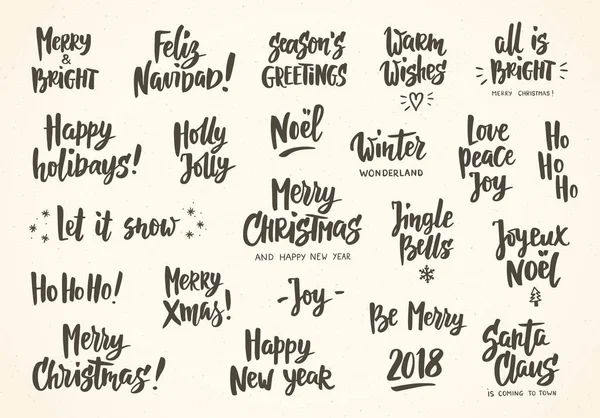 Merry
&
Bright
Feliz
Navidad!
Season's
Greetings
Warm
Wishes
all is
Bright
MERRY CHRISTMAS!
Happy
holidays!
Holly
Jolly
Noël
Winter
WONDERLAND
Love
Peace
Joy
Ho
Ho
Ho
Let it snow
Merry
Christmas
AND HAPPY NEW YEAR
Jingle
Bells
Joyeux
Noël
Ho Ho Ho!
Merry
Xmas!
-Joy-
Be Merry
2018
Merry
Christmas!
Happy
New year
Santa
Claus
IS COMING TO TOWN